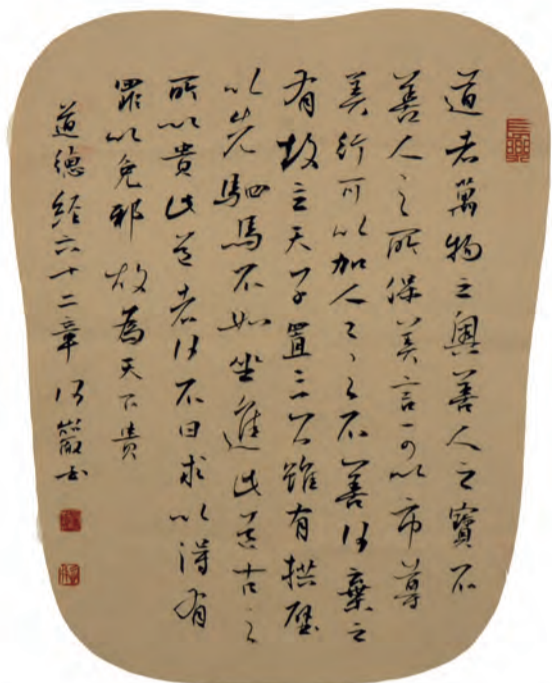 道者萬物之奧善人之寶不
善人之所保美言可以市尊
美行可以加人人之不善何棄之
有故立天子置三公雖有拱璧
以先駟馬不如坐進此道古之
所以貴此道者何不曰求以得有
罪以免邪故為天下貴
道德經六十二章 何巖书